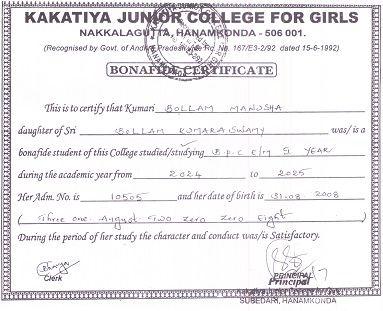 KAKATIYA JUNIOR COLLEGE FOR GIRLS
NAKKALAGUTTA, HANAMKONDA - 506 001.
(Recognised by Govt. of Andhra Pradesh vide Rc. No. 167/E3-2/92 dated 15-6-1992)
BONAFIDE CERTIFICATE
This is to certify that Kumari BOLLAM MANUSHA
daughter of Sri BOLLAM KUMARA SWAMY was/is a
bonafide student of this College studied/studying B.P.C E/M YEAR
during the academic year from 2024 to 2025
Her Adm. No. is 10505 and her date of birth is 31.08.2008
( Three one August Two Zero Zero Eight )
During the period of her study the character and conduct was/is Satisfactory.
Clerk
PRINCIPAL
Principal
SUBEDARI, HANAMKONDA